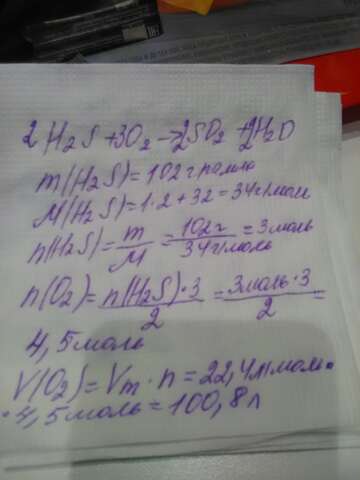 2H₂S+3O₂→2SO₂+2H₂O
m(H₂S)=102г
M(H₂S)=1·2+32=34г/моль
n(H₂S)=m/M=102г/34г/моль=3моль
n(O₂)=n(H₂S)·3/2=3моль·3/2=
4,5моль
V(O₂)=Vm·n=22,4л/моль·
·4,5моль=100,8л